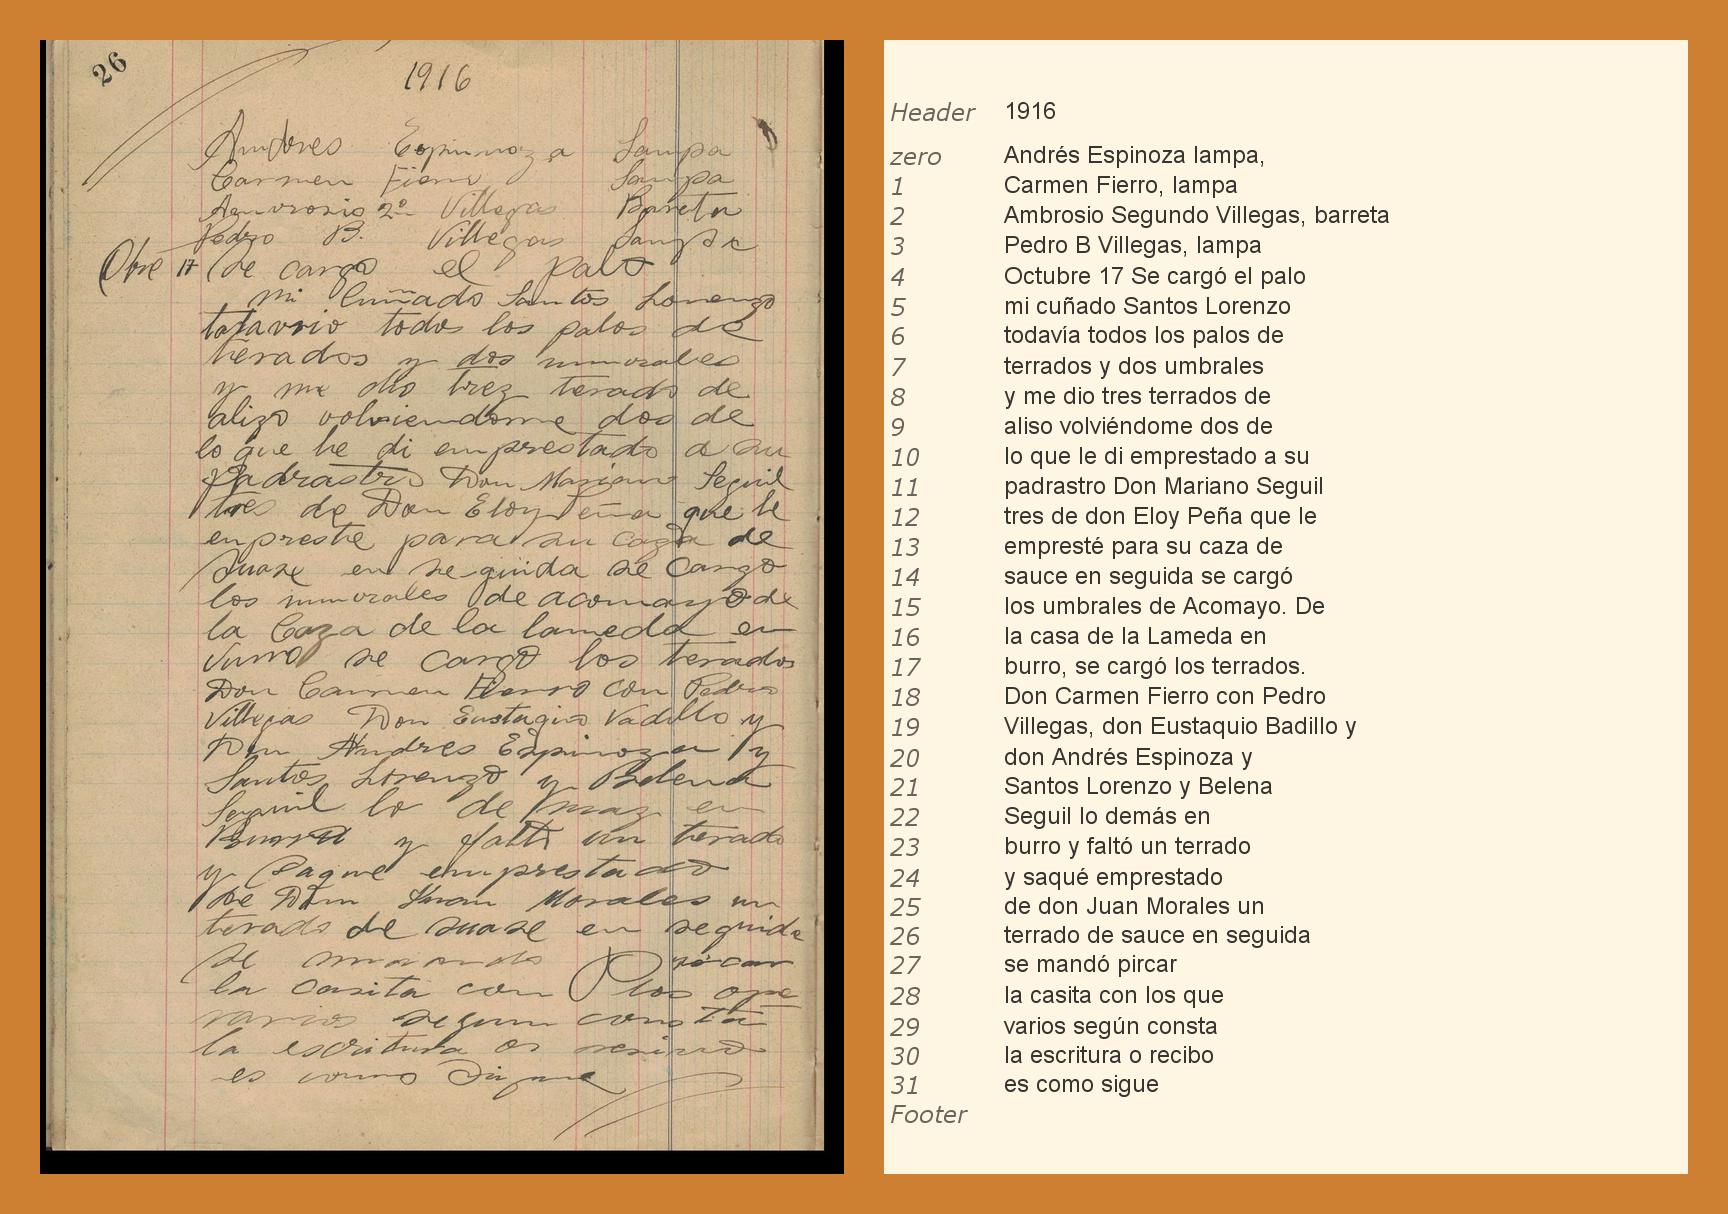 26
1916
Andres Espinoza Lampa
Carmen Fierro Lampa
Amvrosio 2º Villegas Barreta
Pedro B. Villegas Lampa
Obre 17 Se cargo el palo
mi cuñado Santos Lorenzo
totavio todos los palos de
terados y dos umvrales
y me dio trez terado de
alizo volviendome dos de
lo que he di emprestado a su
Padrastro Don Mariano Seguil
tres de Don Eloy Peña que le
empreste para su caza de
suase en seguida se Cargo
los umvrales de acomayo de
la Caza de la lameda en
vurro se cargo los terados
Don Carmen Fierro con Pedro
Villegas Don Eustaqio Vadillo y
Don Andres Espinoza y
Santos Lorenzo y Belena
Seguil lo de maz en
Burro y falto un terado
y Saque emprestado
de Don Juan Morales un
terado de suase en seguida
se mando pircar
la casita con los ope
rarios segun consta
la escritura o resivo
es como Sigue
Header 1916
zero Andrés Espinoza lampa,
1 Carmen Fierro, lampa
2 Ambrosio Segundo Villegas, barreta
3 Pedro B Villegas, lampa
4 Octubre 17 Se cargó el palo
5 mi cuñado Santos Lorenzo
6 todavía todos los palos de
7 terrados y dos umbrales
8 y me dio tres terrados de
9 aliso volviéndome dos de
10 lo que le di emprestado a su
11 padrastro Don Mariano Seguil
12 tres de don Eloy Peña que le
13 empresté para su caza de
14 sauce en seguida se cargó
15 los umbrales de Acomayo. De
16 la casa de la Lameda en
17 burro, se cargó los terrados.
18 Don Carmen Fierro con Pedro
19 Villegas, don Eustaquio Badillo y
20 don Andrés Espinoza y
21 Santos Lorenzo y Belena
22 Seguil lo demás en
23 burro y faltó un terrado
24 y saqué emprestado
25 de don Juan Morales un
26 terrado de sauce en seguida
27 se mandó pircar
28 la casita con los que
29 varios según consta
30 la escritura o recibo
31 es como sigue
Footer